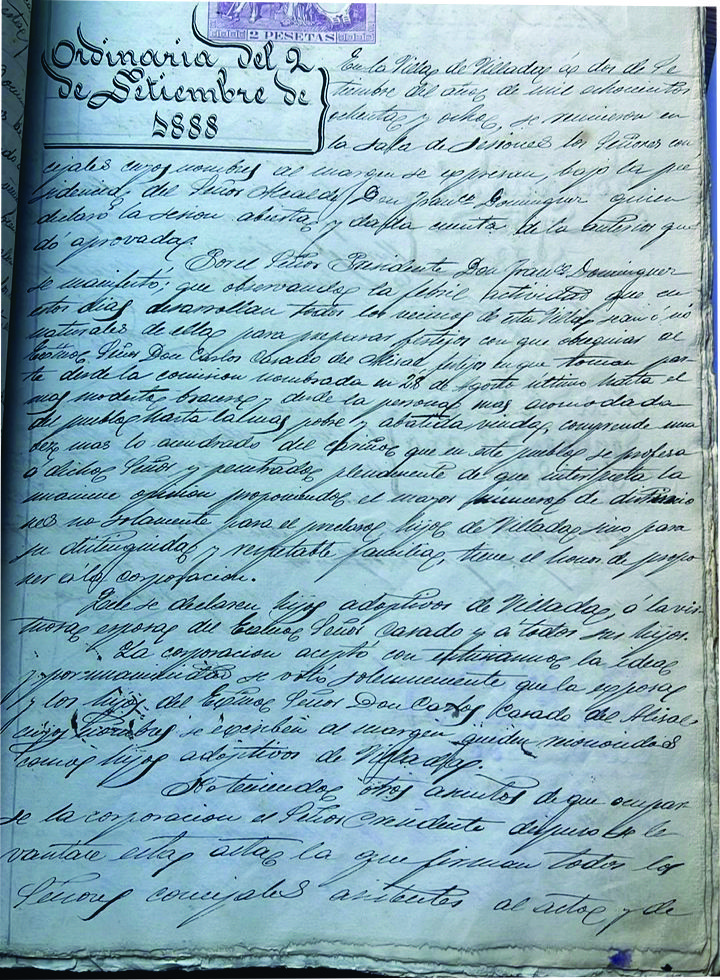 2 PESETAS
Ordinaria del 2
de Setiembre de
1888
En la Villa de Villada á dos de Se-
tiembre del año de mil ochocientos
ochenta y ocho, se reunieron en
la Sala de Sesiones los Señores con
cejales cuyos nombres al margen se expresan, bajo la pre
sidencia del Señor Alcalde Don Franco Dominguez quien
declaró la sesion abierta y dada cuenta de la anterior que
dó aprovada.
Por el Señor Presidente Don Franco Dominguez
se manifestó; que observando la febril actividad que en
estos dias desarrollan todos los vecinos de esta Villa, sean ó no
naturales de ella, para preparar festejos con que obsequiar al
Excmo Señor Don Carlos Casado del Alisal, festejos en que toman par
te desde la comision nombrada en 28 de Agosto último hasta el
mas modesto bracero y desde la persona mas acomodada
del pueblo hasta la mas pobre y abatida viuda, comprende una
vez mas lo acendrado del cariño que en este pueblo se profesa
á dicho Señor y penetrado plenamente de que interpreta la
unanime opinion proponiendo el mayor numero de distincio
nes no solamente para el preclaro hijo de Villada, sino para
su distinguida y respetable familia, tiene el honor de propo
ner á la corporacion.
Que se declaren hijos adoptivos de Villada, á la vir
tuosa esposa del Excmo Señor Casado y á todos sus hijos.
La corporacion aceptó con entusiasmo la idea
y por unanimidad se votó solemnemente que la esposa
y los hijos del Excmo Señor Don Carlos Casado del Alisal
cuyos nombres se escriben al margen queden reconocidos
como hijos adoptivos de Villada.
No teniendo otros asuntos de que ocupar
se la corporacion el Señor Presidente dispuso se le
vantare esta acta, la que firman todos los
Señores concejales asistentes al acto, y de